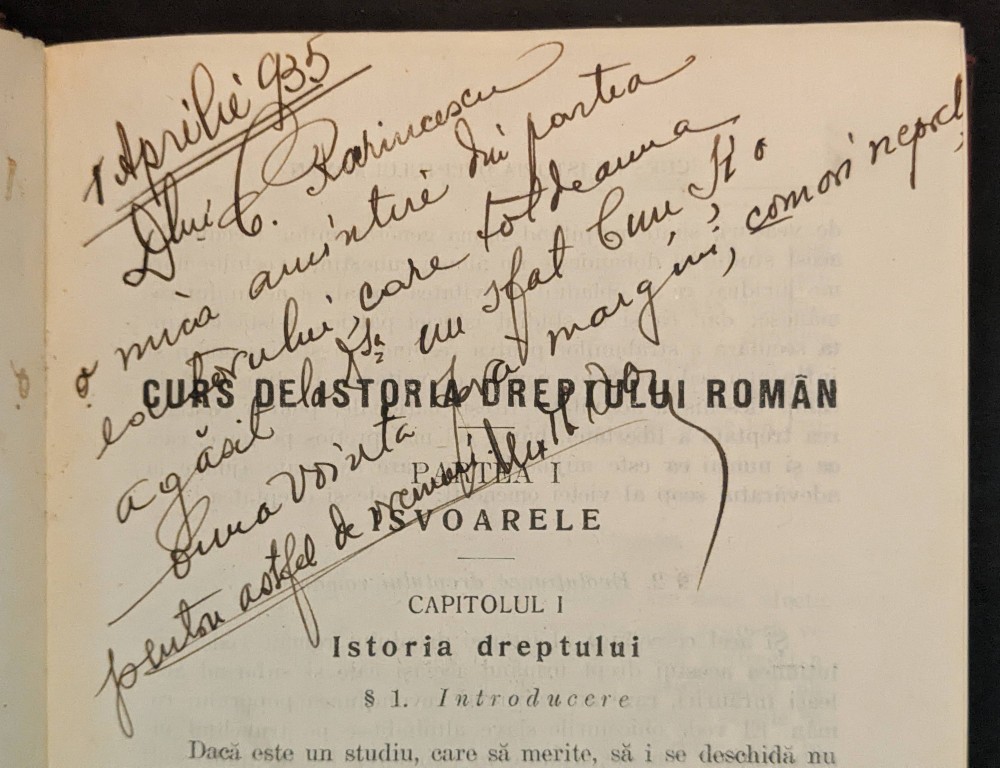 1 Aprilie 935
Dlui C. Karincescu
o mică amintire din partea
a găsit la Dta un sfat bun și o
buna voința fără margini, comori
pentru astfel de vremori
CURS DE ISTORIA DREPTULUI ROMÂN
PARTEA I
ISVOARELE
CAPITOLUL I
Istoria dreptului
§ 1. Introducere
Dacă este un studiu, care să merite, să i se deschidă nu